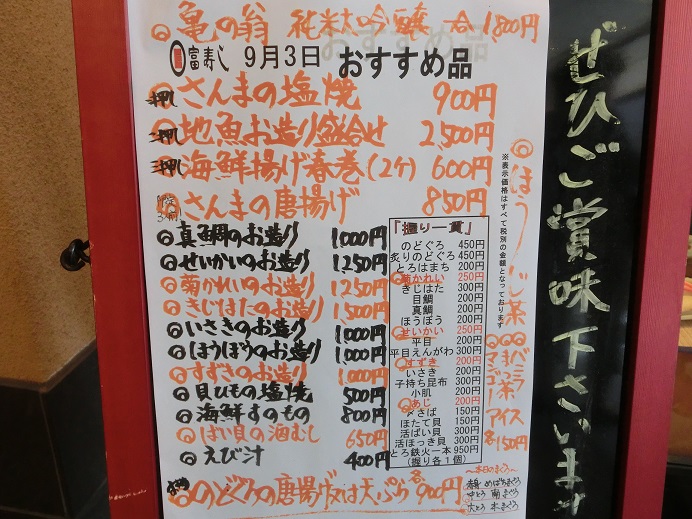 ◎亀の翁 純米大吟醸 一合 1800円
富寿し 9月3日 おすすめ品
押し さんまの塩焼 900円
押し 地魚お造り盛合せ 2,500円
押し 海鮮揚げ春巻(2ケ) 600円
限定 さんまの唐揚げ 850円
◎真鯛のお造り 1000円
◎せいかいのお造り 1250円
◎菊かれいのお造り 1250円
◎きじはたのお造り 1,500円
◎いさきのお造り 1,000円
◎ほうぼうのお造り 1,000円
◎すずきのお造り 1,000円
◎貝ひもの塩焼 500円
◎海鮮すのもの 800円
◎ばい貝の酒むし 650円
◎えび汁 400円
のどぐろの唐揚げ又は天ぷら 各900円
『握り一貫』
のどぐろ 450円
炙りのどぐろ 450円
とろはまち 200円
◎菊かれい 250円
きじはた 300円
目鯛 200円
真鯛 200円
ほうぼう 200円
◎せいかい 250円
平目 200円
平目えんがわ 300円
◎すずき 200円
いさき 200円
子持ち昆布 300円
小肌 200円
◎あじ 200円
〆さば 150円
ほたて貝 150円
活ばい貝 300円
活ほっき貝 300円
とろ鉄火一本 950円
(握り各1個)
※表示価格はすべて税別の金額となっております
◎ほうじ茶
◎バニラ
◎まっ茶
◎マンゴー
アイス
各150円
〜本日のまぐろ〜
赤身 めばちまぐろ
中とろ 南まぐろ
大とろ 本まぐろ
ぜひご賞味下さいませ